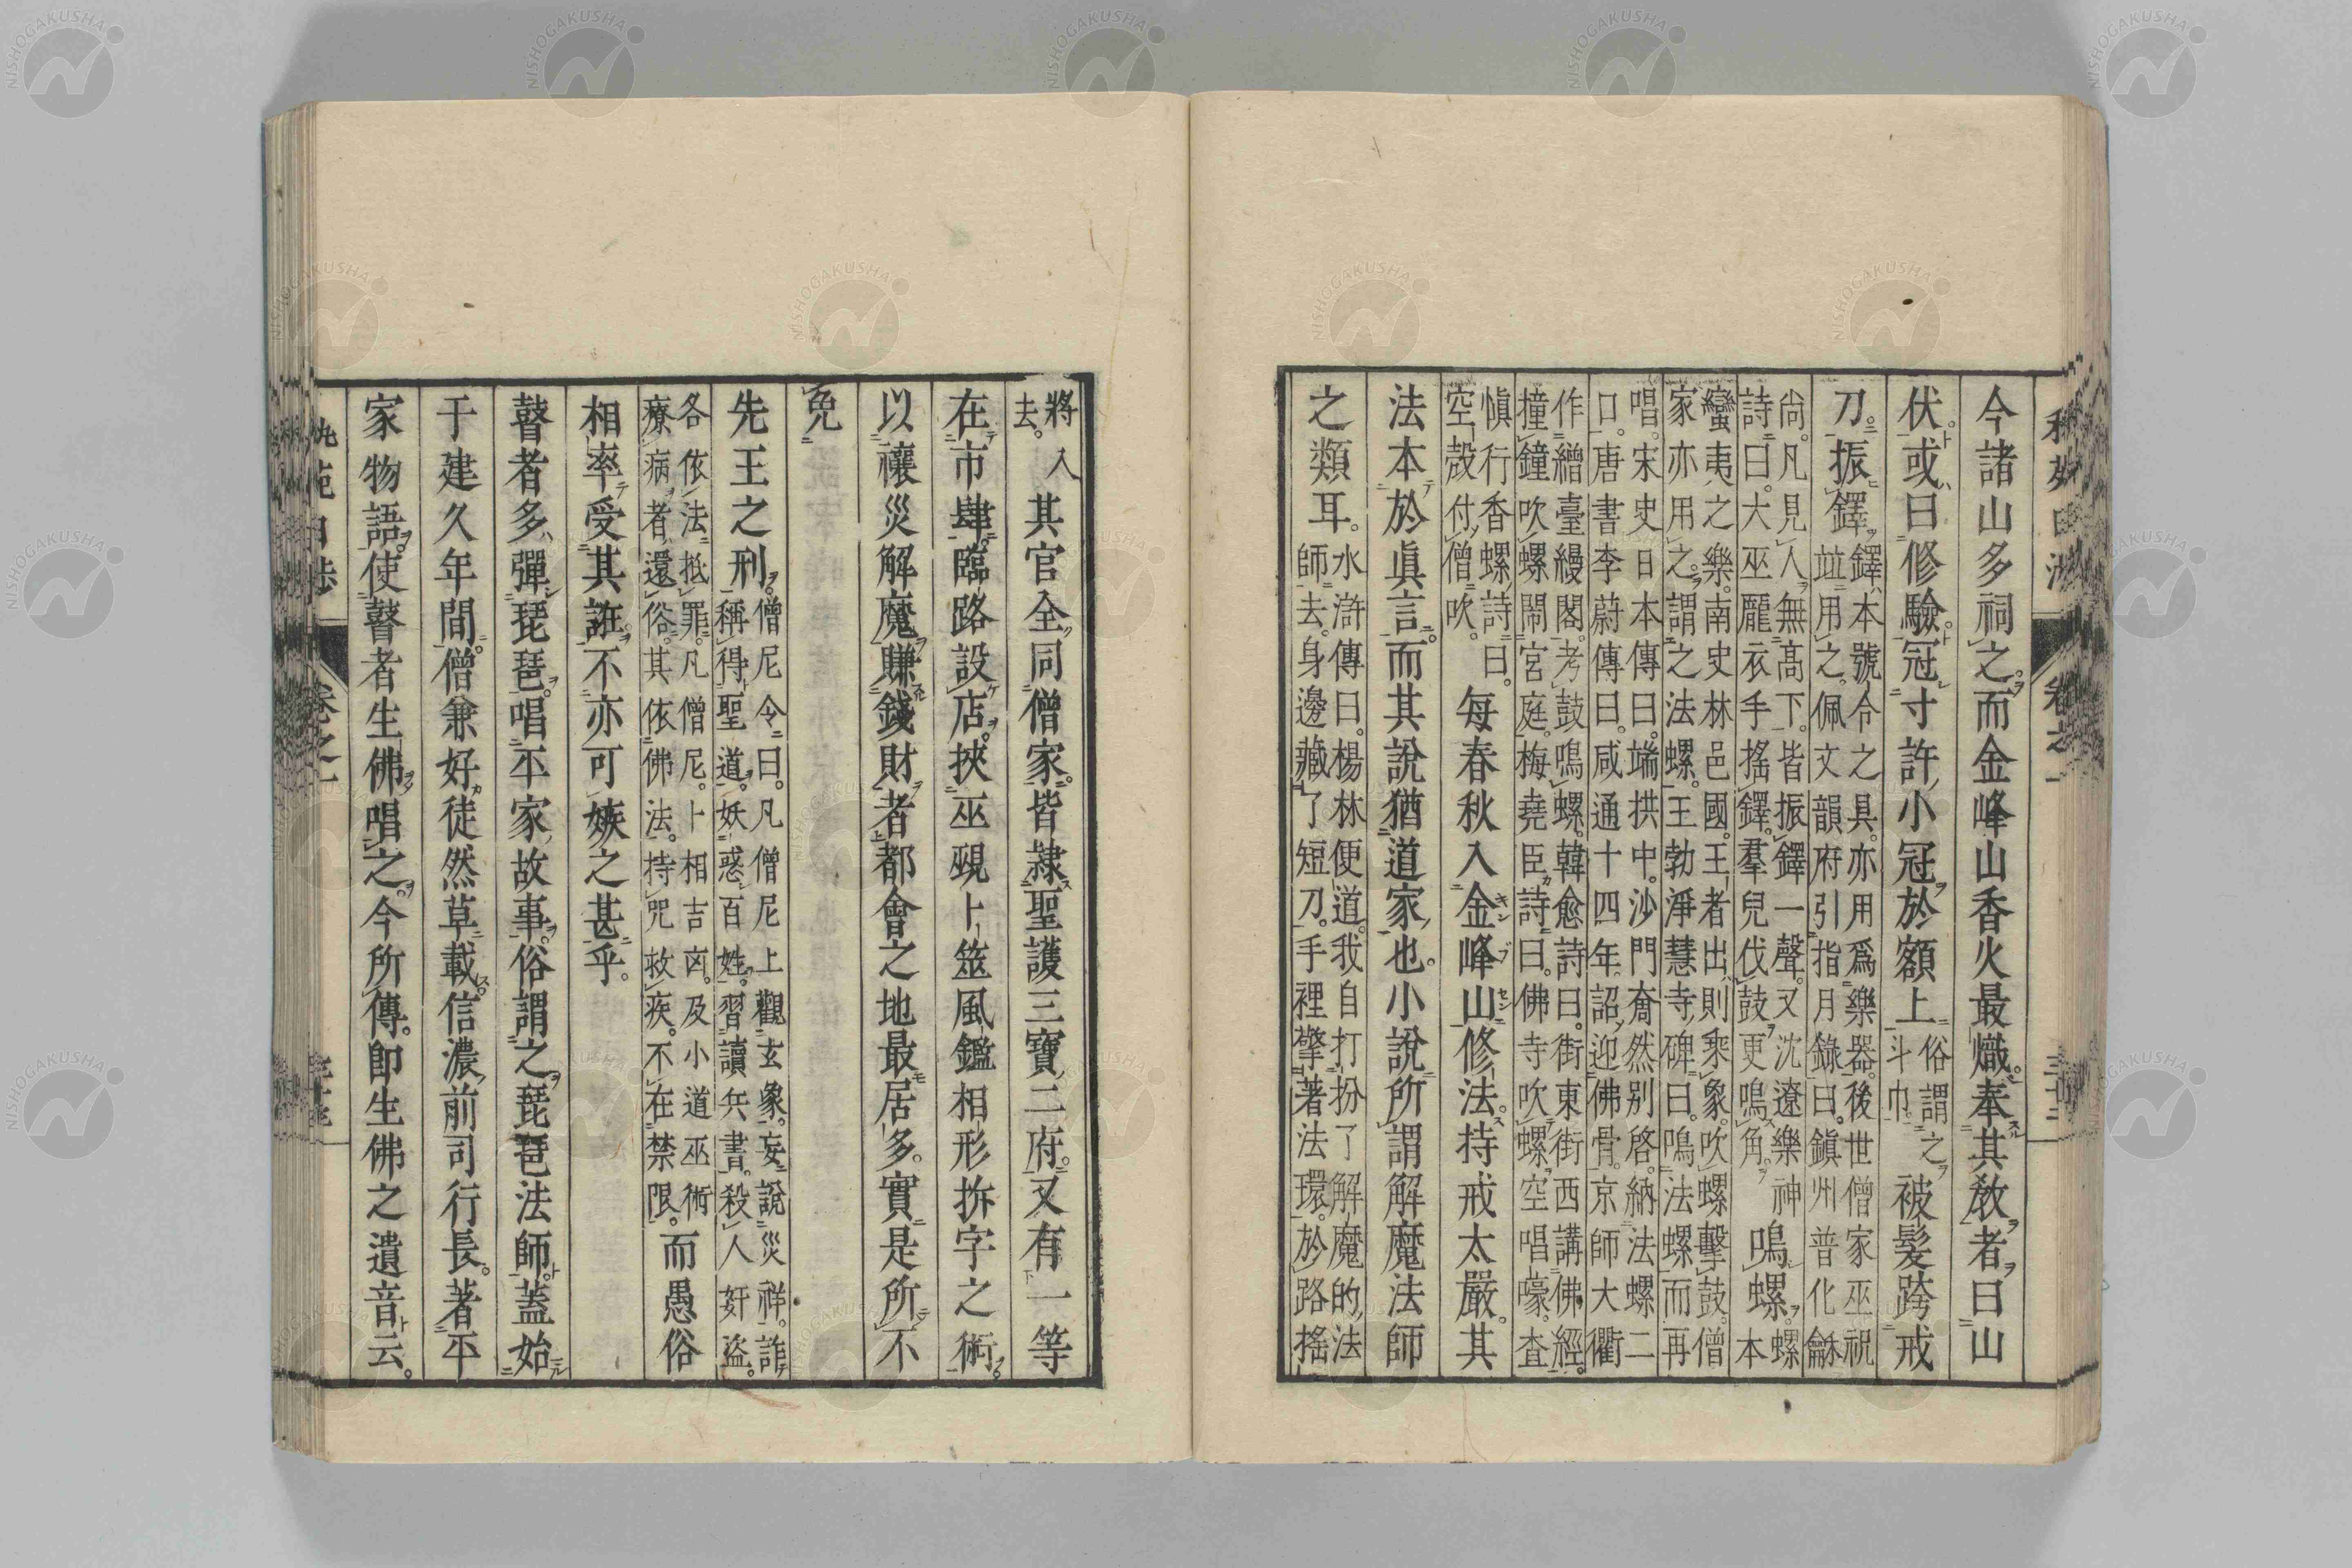 今諸山多祠之。而金峰山香火最熾。奉其敎者。曰山
伏。或曰修驗。冠寸許小冠於額上
俗謂之
斗巾。
被髮跨戒
刀。振鐸。
鐸本號令之具。亦用爲樂器。後世僧家巫祝
竝用之。佩文韻府引指月錄曰。鎭州普化龢
尙。凡見人無高下。皆振鐸一聲。又沈遼樂神
詩曰。大巫龎衣手搖鐸。羣兒伐鼓更鳴角。
鳴螺。
螺
本
蠻夷之樂。南史林邑國。王者出則乘象。吹螺擊鼓。僧
家亦用之。謂之法螺。王勃淨慧寺碑曰。鳴法螺而再
唱。宋史日本傳曰。端拱中。沙門奝然別啓。納法螺二
口。唐書李蔚傳曰。咸通十四年。詔迎佛骨。京師大衢
作繒臺縵閣。考鼓鳴螺。韓愈詩曰。街東街西講佛經。
撞鐘吹螺鬧宮庭。梅堯臣詩曰。佛寺吹螺空唱嚎。査
愼行香螺詩曰。
空殼付僧吹。
每春秋入金峰山修法。持戒太嚴。其
法本於眞言。而其說猶道家也。小說所謂解魔法師
之類耳。
水滸傳曰。楊林便道。我自打扮了解魔的法
師去。身邊藏了短刀。手裡擎著法環。於路搖
將入
去。
其官全同僧家。皆隷聖護三寶二府。又有一等
在市肆。臨路設店。挾巫覡卜筮風鑑相形拆字之術。
以禳災解魔賺錢財者。都會之地最居多。實是所不
免
先王之刑。
僧尼令曰。凡僧尼上觀玄象。妄說災祥。詐
稱得聖道。妖惑百姓。習讀兵書。殺人奸盜。
各依法抵罪。凡僧尼。卜相吉凶。及小道巫術
療病者。還俗。其依佛法。持呪救疾。不在禁限。
而愚俗
相率受其誑。不亦可嫉之甚乎。
瞽者多彈琵琶。唱平家故事。俗謂之琵琶法師。蓋始
于建久年間。僧兼好徒然草載。信濃前司行長。著平
家物語。使瞽者生佛唱之。今所傳。卽生佛之遺音云。